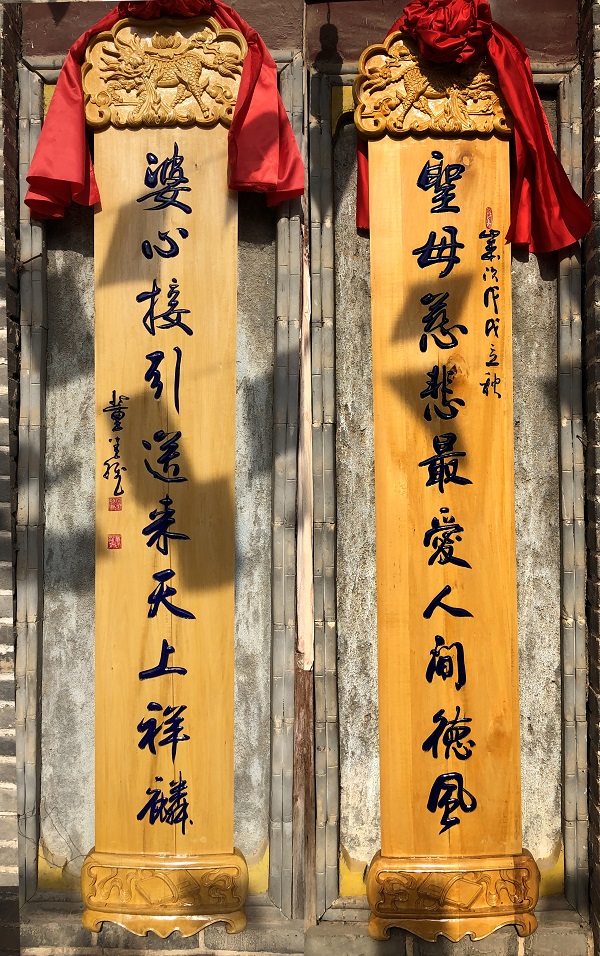 聖母慈悲最愛人間德風
歲次戊戌立秋
婆心接引送來天上祥麟